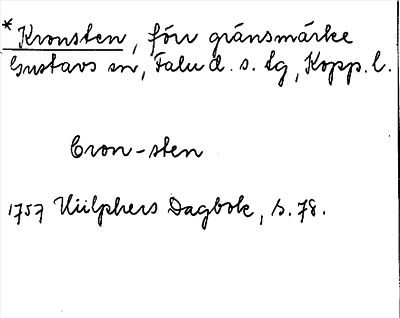 *Kronsten, förr gränsmärke
Gustavs sn, Falu d. s. tg, Kopp. l.
Cron-sten
1757 Hülphers Dagbok, s. 78.